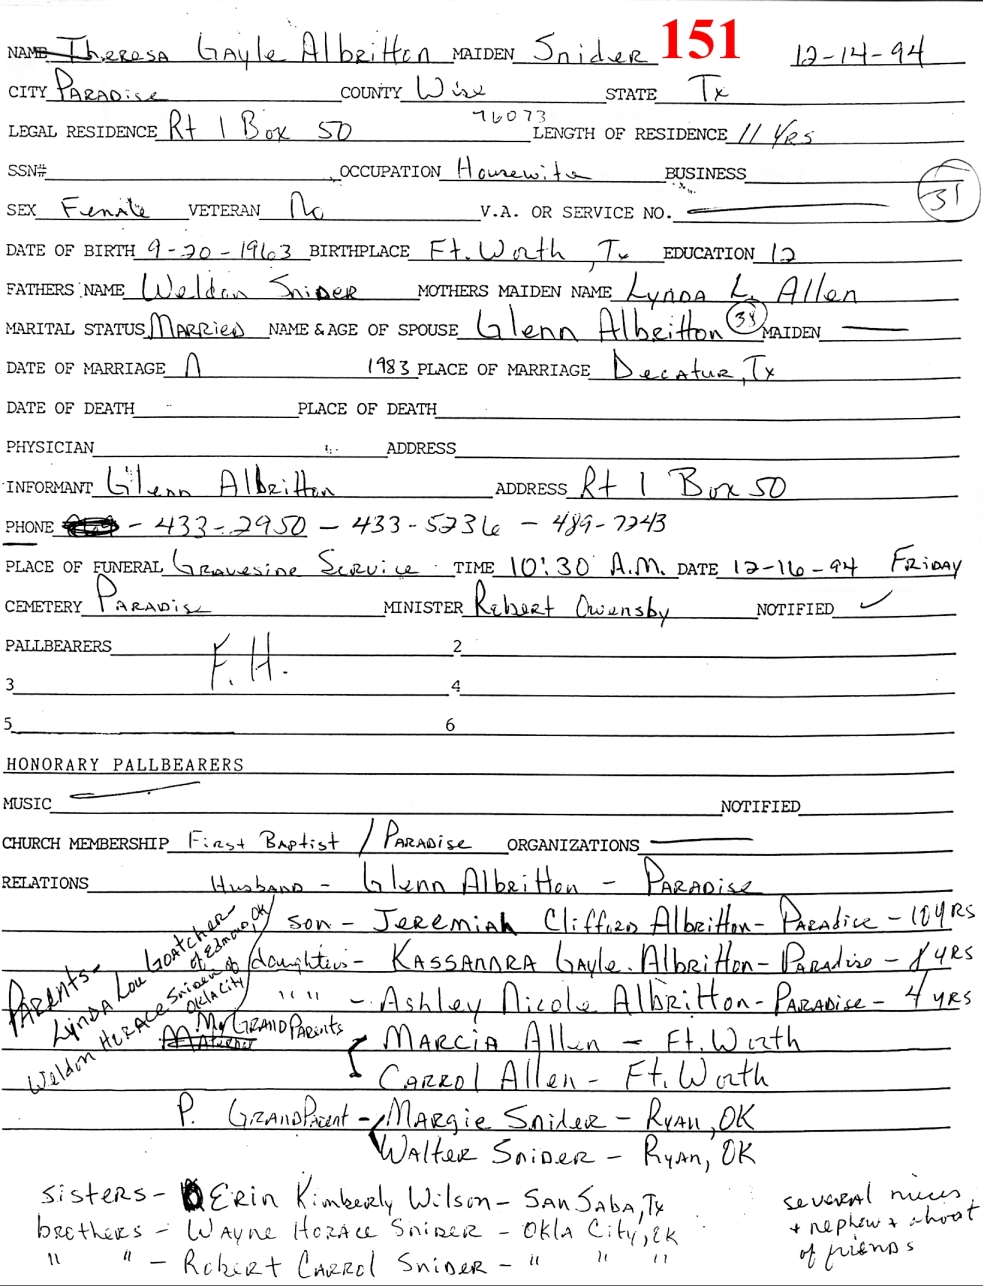 NAME Theresa Gayle Albritton MAIDEN Snider 151 12-14-94
CITY Paradise COUNTY Wise STATE Tx
LEGAL RESIDENCE Rt 1 Box 50 76073 LENGTH OF RESIDENCE 11 Yrs
SSN# OCCUPATION Housewife BUSINESS
31
SEX Female VETERAN No V.A. OR SERVICE NO.
DATE OF BIRTH 9-20-1963 BIRTHPLACE Ft. Worth, Tx EDUCATION 12
FATHERS NAME Weldon Snider MOTHERS MAIDEN NAME Lynda L. Allen
MARITAL STATUS Married NAME & AGE OF SPOUSE Glenn Albritton 38 MAIDEN
DATE OF MARRIAGE 1983 PLACE OF MARRIAGE Decatur, Tx
DATE OF DEATH PLACE OF DEATH
PHYSICIAN ADDRESS
INFORMANT Glenn Albritton ADDRESS Rt 1 Box 50
PHONE - 433-2950 - 433-5236 - 489-7243
PLACE OF FUNERAL Graveside Service TIME 10:30 A.M. DATE 12-16-94 Friday
CEMETERY Paradise MINISTER Robert Owensby NOTIFIED ✓
PALLBEARERS F.H. 2
3 4
5 6
HONORARY PALLBEARERS
MUSIC NOTIFIED
CHURCH MEMBERSHIP First Baptist / Paradise ORGANIZATIONS
RELATIONS Husband - Glenn Albritton - Paradise
son - Jeremiah Clifford Albritton - Paradice - 10 yrs
daughters - Kassandra Gayle Albritton - Paradise - 8 yrs
" " - Ashley Nicole Albritton - Paradise - 4 yrs
Parents-
Lynda Lou Goatcher of Edmond, OK
Weldon Horace Snider of Okla City
M GrandParents
Marcia Allen - Ft. Worth
Carrol Allen - Ft. Worth
P. GrandParent - Margie Snider - Ryan, OK
Walter Snider - Ryan, OK
sisters - Erin Kimberly Wilson - San Saba, Tx
brothers - Wayne Horace Snider - Okla City, OK
" " - Robert Carrol Snider - " " "
several nieces
+ nephew + a host
of friends